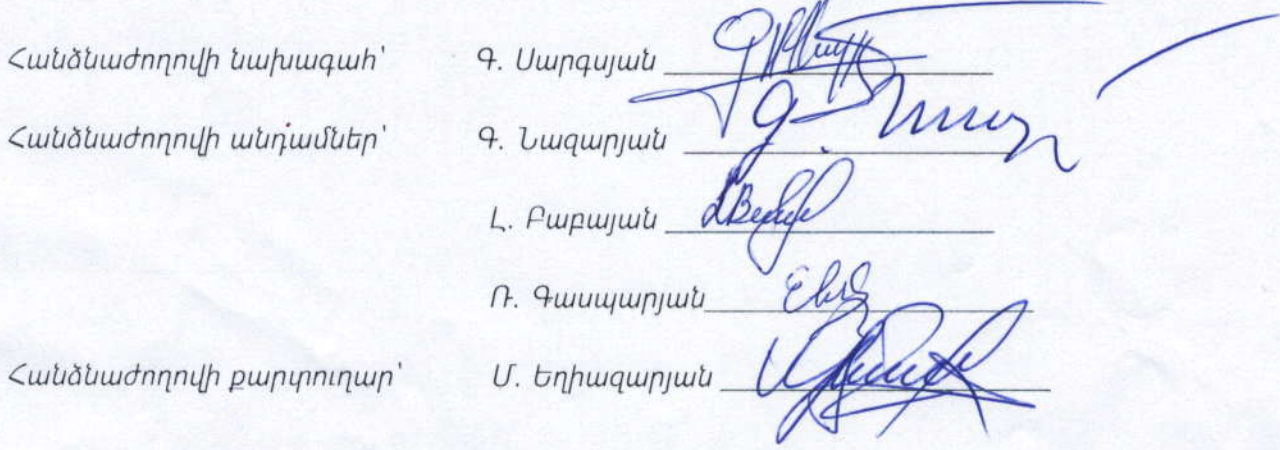 Հանձնաժողովի նախագահ՝ Գ. Սարգսյան
Հանձնաժողովի անդամներ՝ Գ. Նազարյան
Լ. Բաբայան
Ռ. Գասպարյան
Հանձնաժողովի քարտուղար՝ Մ. Եղիազարյան